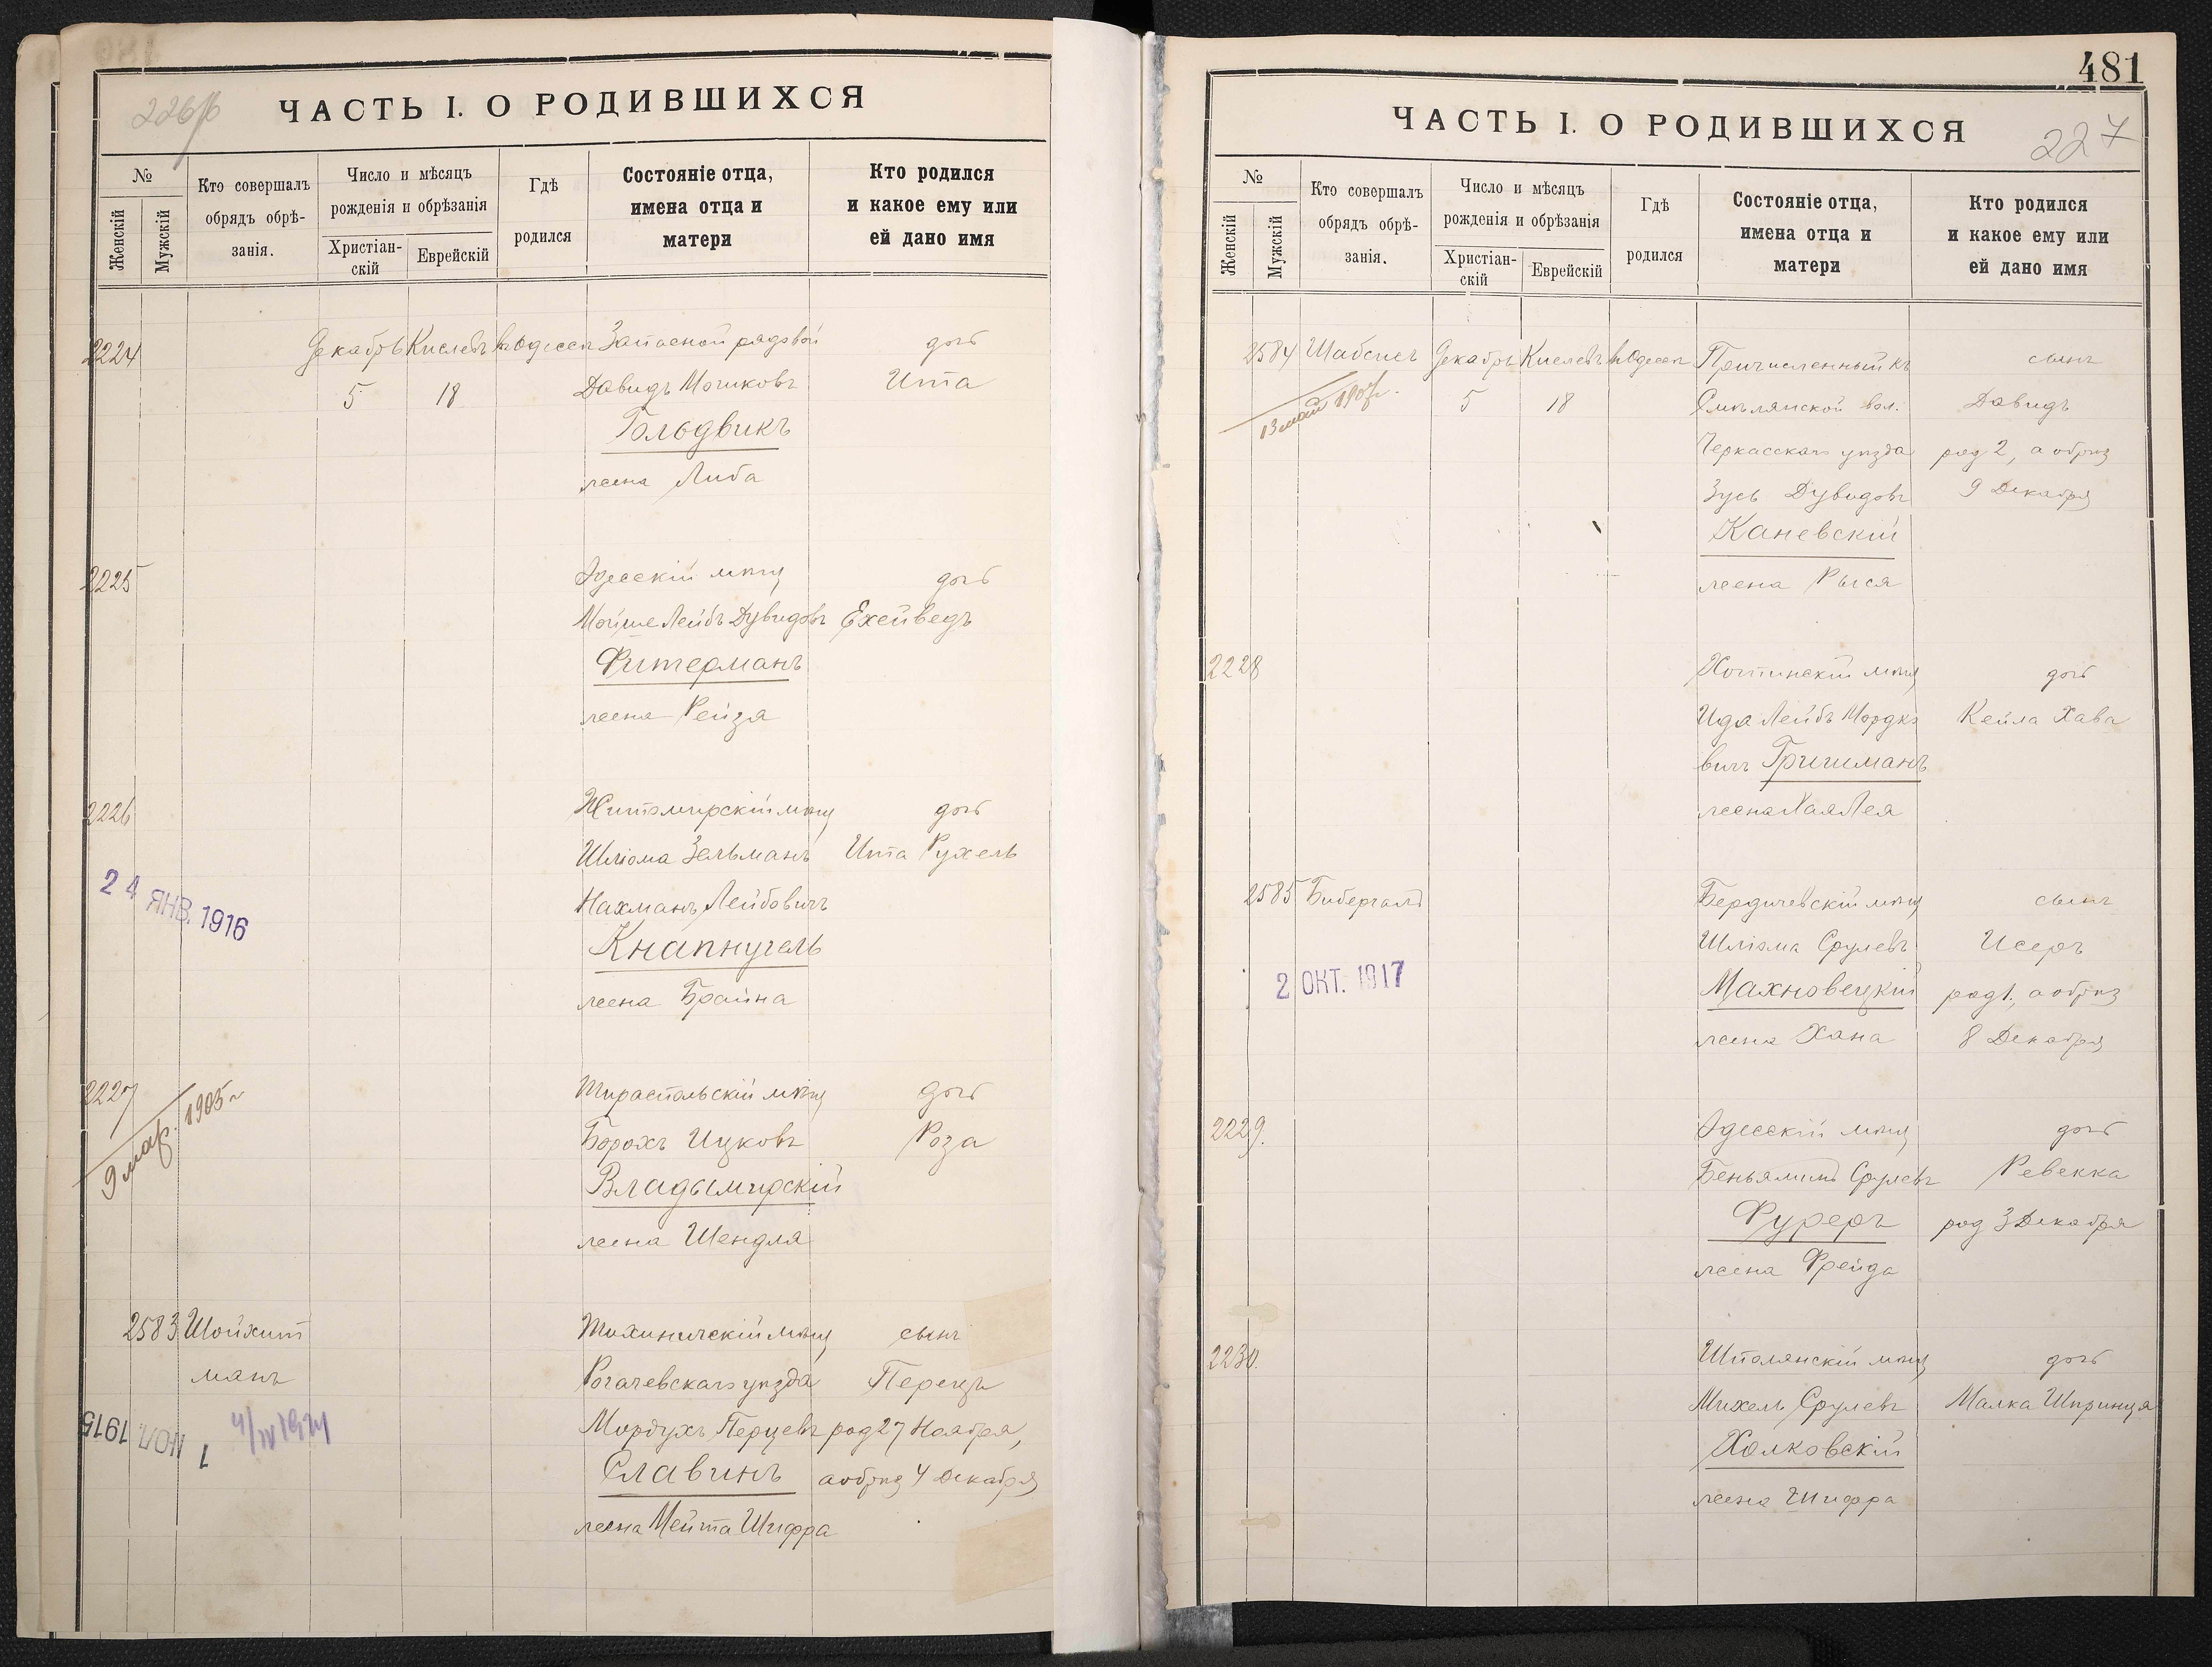 226/б
ЧАСТЬ I. О РОДИВШИХСЯ
№
Женскій
Мужскій
Кто совершалъ
обрядъ обрѣ-
занія.
Число и мѣсяцъ
рожденія и обрѣзанія
Христіан-
скій
Еврейскій
Гдѣ
родился
Состояніе отца,
имена отца и
матери
Кто родился
и какое ему или
ей дано имя
2224 Декабрь Кислевъ въ Одессѣ Запасной рядовой дочь
5 18 Давидъ Мошковъ Ита
Гольдвикъ
жена Либа
2225 Одесскій мѣщ дочь
Мойше Лейбъ Дувидовъ Ехейведъ
Фитерманъ
жена Рейзя
2226 Житомирскій мѣщ дочь
Шліома Зельманъ Ита Рухель
24 ЯНВ. 1916
Нахманъ Лейбовичъ
Кнапнугель
жена Брайна
2227 Тираспольскій мѣщ дочь
9 мар. 1905 г
Борохъ Ицковъ Роза
Владымирскій
жена Шендля
2583 Шойхит Тихиничскій мѣщ сынъ
манъ Рогачевскаго уѣзда Перецъ
1 ИЮЛ. 1915
4/IV 1924
Мордухъ Перцевъ род 27 Ноября,
Славинъ а обрѣз 4 Декабря
жена Мейта Шифра
481
ЧАСТЬ I. О РОДИВШИХСЯ
227
№
Женскій
Мужскій
Кто совершалъ
обрядъ обрѣ-
занія.
Число и мѣсяцъ
рожденія и обрѣзанія
Христіан-
скій
Еврейскій
Гдѣ
родился
Состояніе отца,
имена отца и
матери
Кто родился
и какое ему или
ей дано имя
2584 Шабсисъ Декабрь Кислевъ въ Одессѣ Причисленный къ сынъ
13 мая 1907 г.
5 18 Смѣлянской вол. Давидъ
Черкасскаго уѣзда род 2, а обрѣз
Зусь Дувидовъ 9 Декабря
Каневскій
жена Рыся
2228 Хотинскій мѣщ дочь
Ида Лейбъ Мордко Кейла Хава
вичъ Гришманъ
жена Хая Лея
2585 Бибергалъ Бердичевскій мѣщ сынъ
Шліома Срулевъ Исеръ
2 ОКТ. 1917
Махновецкій род 1, а обрѣз
жена Хана 8 Декабря
2229. Одесскій мѣщ дочь
Беньяминъ Срулевъ Ревекка
Фуреръ род 3 Декабря
жена Фрейда
2230. Шполянскій мѣщ дочь
Михель Срулевъ Малка Шпринця
Холковскій
жена Шифра